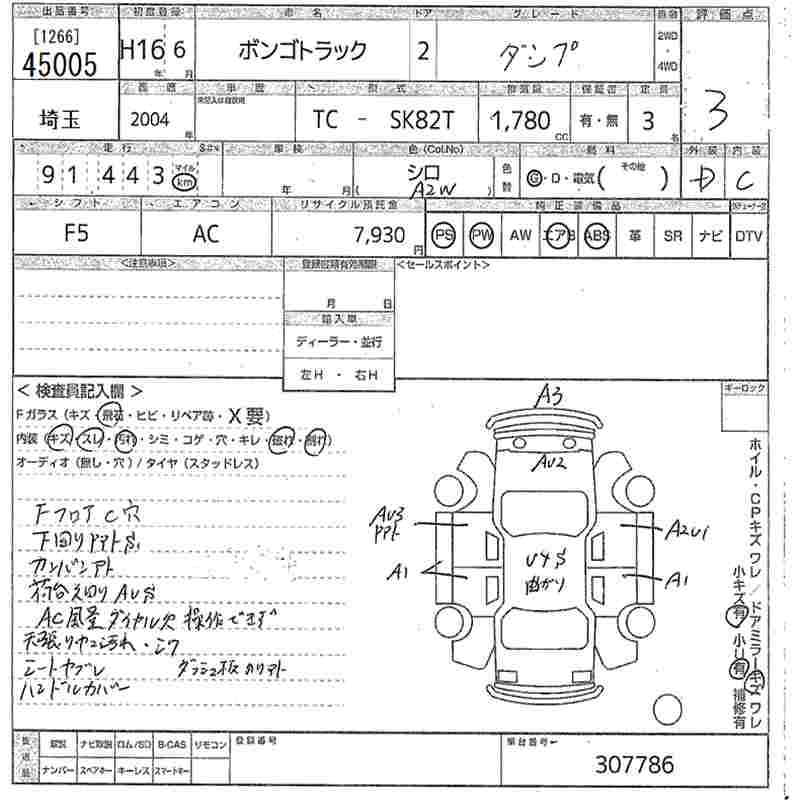 出品番号 初度登録 車名 ドア グレード 評価点
[1266]
45005 H16年 6月 ボンゴトラック 2 ダンプ 2WD・4WD 3
車歴 型式 排気量 保証書 定員
埼玉 2004年 TC - SK82T 1,780cc 有・無 3名
走行 車検 色(Col.No) 燃料 外装 内装
91443 マイル km 年 月 シロ (A2W) 色替 G・D・電気( その他 ) D C
シフト エアコン リサイクル預託金 純正装備品
F5 AC 7,930円 PS PW AW エアB ABS 革 SR ナビ DTV
<注意事項> 登録書類有効期限 <セールスポイント>
月 日
輸入車
ディーラー・並行
左H ・ 右H
<検査員記入欄> キーロック
Fガラス(キズ・飛石・ヒビ・リペア跡・X要)
内装(キズ・スレ・汚れ・シミ・コゲ・穴・キレ・破れ・割れ)
オーディオ(無し・穴)/タイヤ(スタッドレス)
FフロアC穴
下回りサビS
カンバンアト
荷台 AUS
AC風量ダイヤル欠 操作できず
天張り 汚れ・シワ
シートヤブレ ダッシュ板カリアト
ハンドルカバー
A3
AU2
AU3
A2U1
A1
U4S
曲がり
A1
ホイル・CPキズワレ/ドアミラーキズワレ
小キズ有 小U有 補修有
取説 ナビ取説 ロム/SD B-CAS リモコン 登録番号 車台番号
ナンバー スペアキー キーレス スマートキー
307786